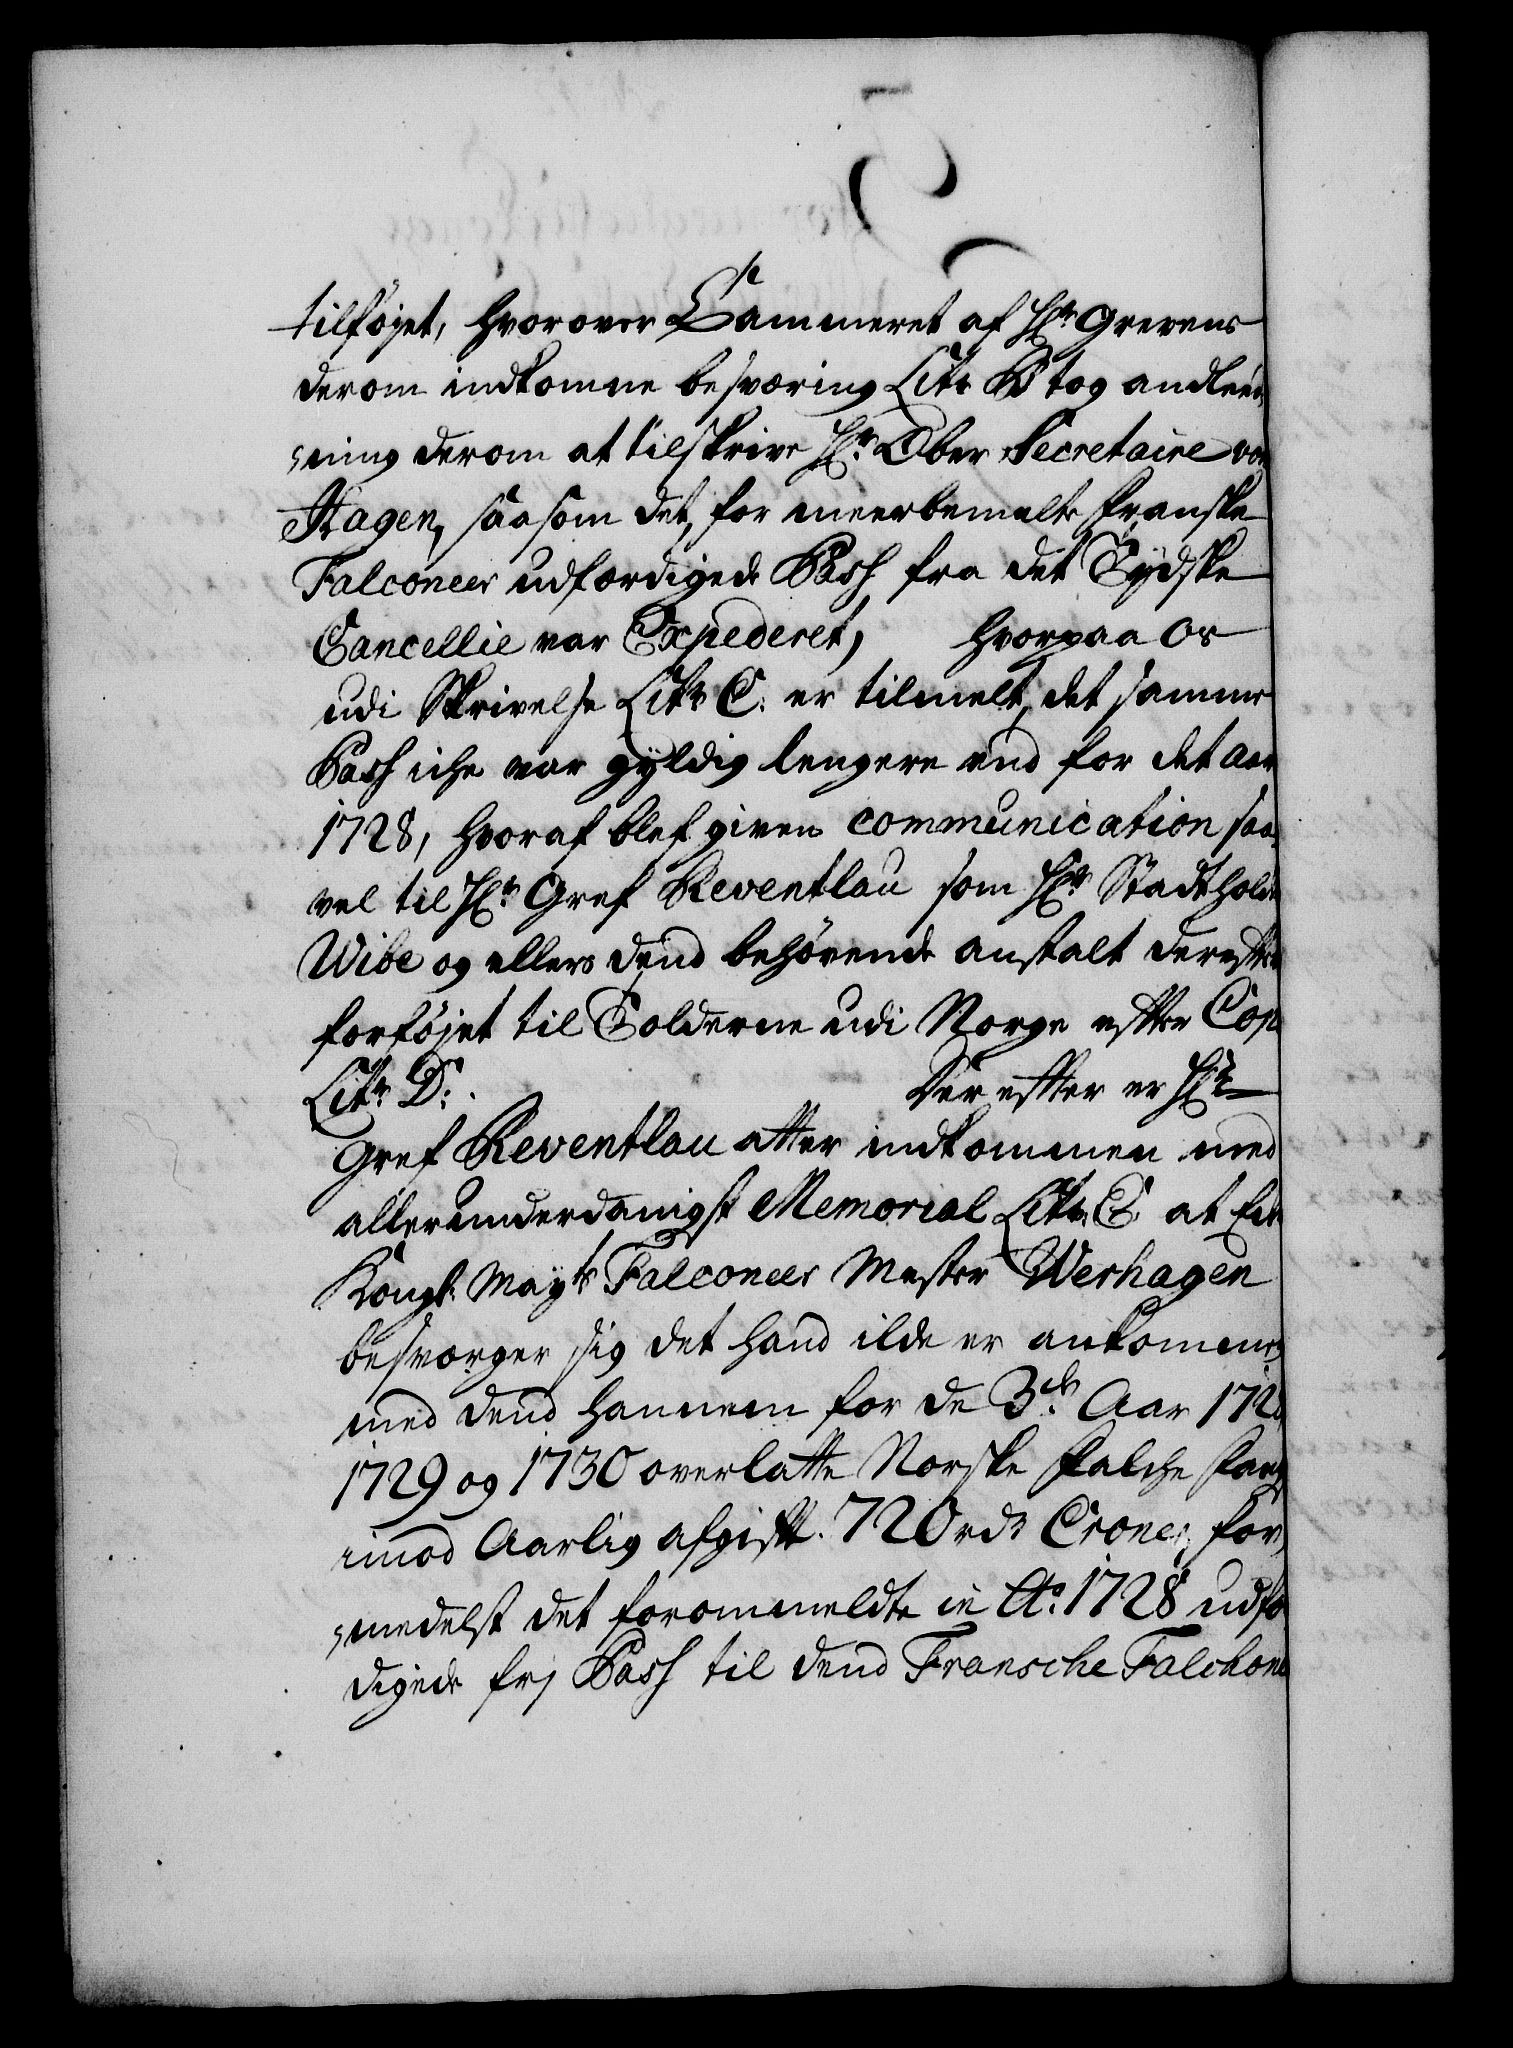 tilføjet, hvorover Cammeret af Hr. Grevens
derom indkomne besværing Litr. B tog andleed,
,,ning derom at tilskrive Hr. Ober Secretaire von
Hagen, saasom det, for meerbemelte Franske
Falconeer udfærdigede Pass fra det Tydske
Cancellie var Expederet, hvorpaa Os
udi Skrivelse Litr. C. er tilmelt, det samme
Pass iche var gyldig lengere end for det Aar
1728, hvoraf blef given communication saa,
vel til Hr. Gref Reventlau som Hr. Stadtholder
Wibe og ellers dend behøvende anstalt derefter
forføjet til Tolderne udi Norge efter Cop.
Litr. D. Der efter er Hr.
Gref Reventlau atter indkommen med
allerunderdanigst Memorial Litr. E at Ed.
Kongl. Mayts Falconeer Mester Werhagen
besværger sig det hand ilde er ankommen
med dend hannem for de 3de Aar 1728,
1729 og 1730 overlatte Norske Falche Fang
imod Aarlig afgift. 720 rdr Croner, for,
,,medelst det forommeldte in Ao. 1728 udfær
digede frj Pass til dend Fransche Falchone